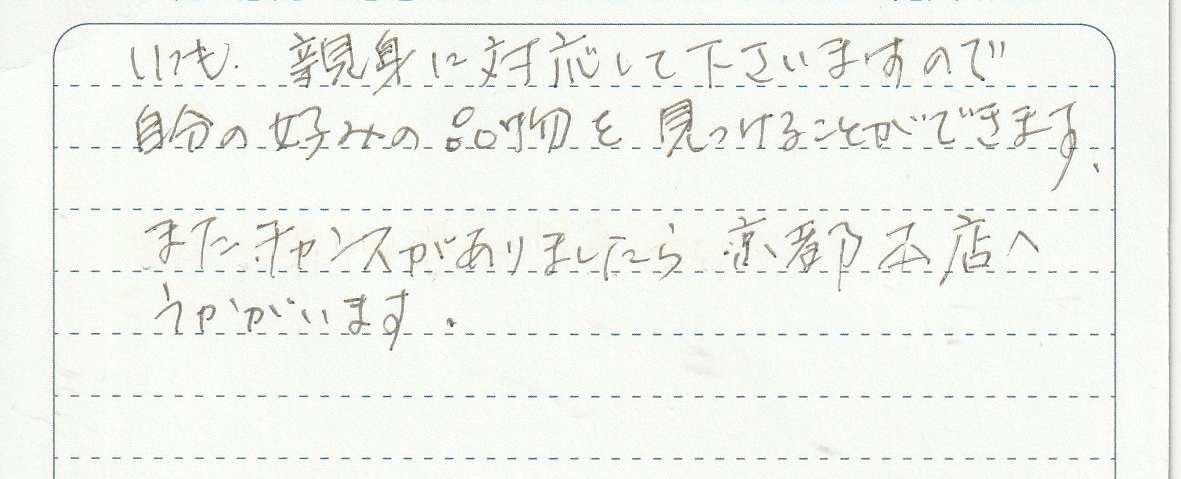 いつも、親身に対応して下さいますので
自分の好みの品物を見つけることができます。
またチャンスがありましたら京都本店へ
うかがいます。